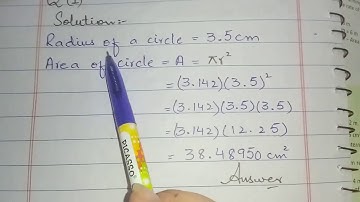 Q (2)
Solution:-
Radius of a circle = 3.5 cm
Area of circle = A = πr²
= (3.142)(3.5)²
= (3.142)(3.5)(3.5)
= (3.142)(12.25)
= 38.48950 cm²
Answer
PICASSO